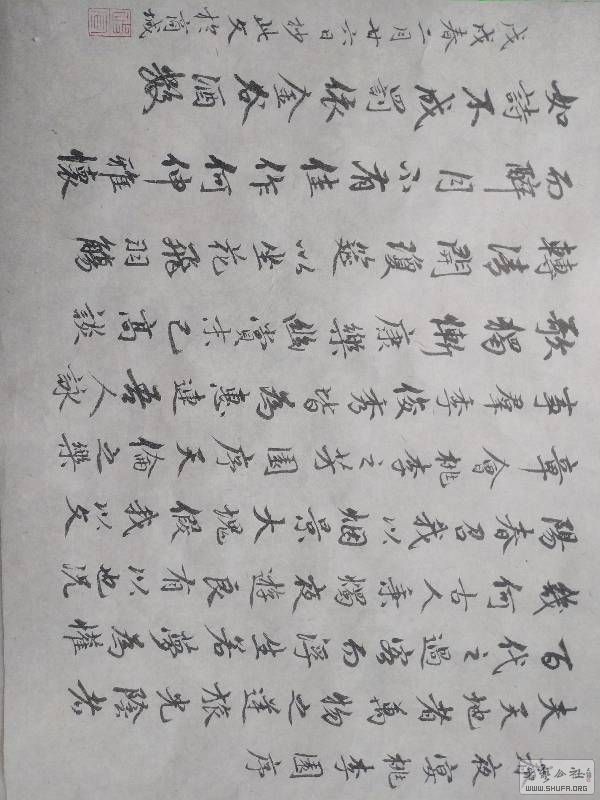 春夜宴桃李園序
夫天地者萬物之逆旅光陰者
百代之過客而浮生若夢為懽
幾何古人秉燭夜遊良有以也況
陽春召我以烟景大塊假我以文
章會桃李之芳園序天倫之樂
事羣季俊秀皆為惠連吾人詠
歌獨慚康樂幽賞未已高談
轉清開瓊筵以坐花飛羽觴
而醉月不有佳作何伸雅懷
如詩不成罰依金谷酒數
戊戌春二月廿六日抄此文於商城
WWW.SHUFA.ORG